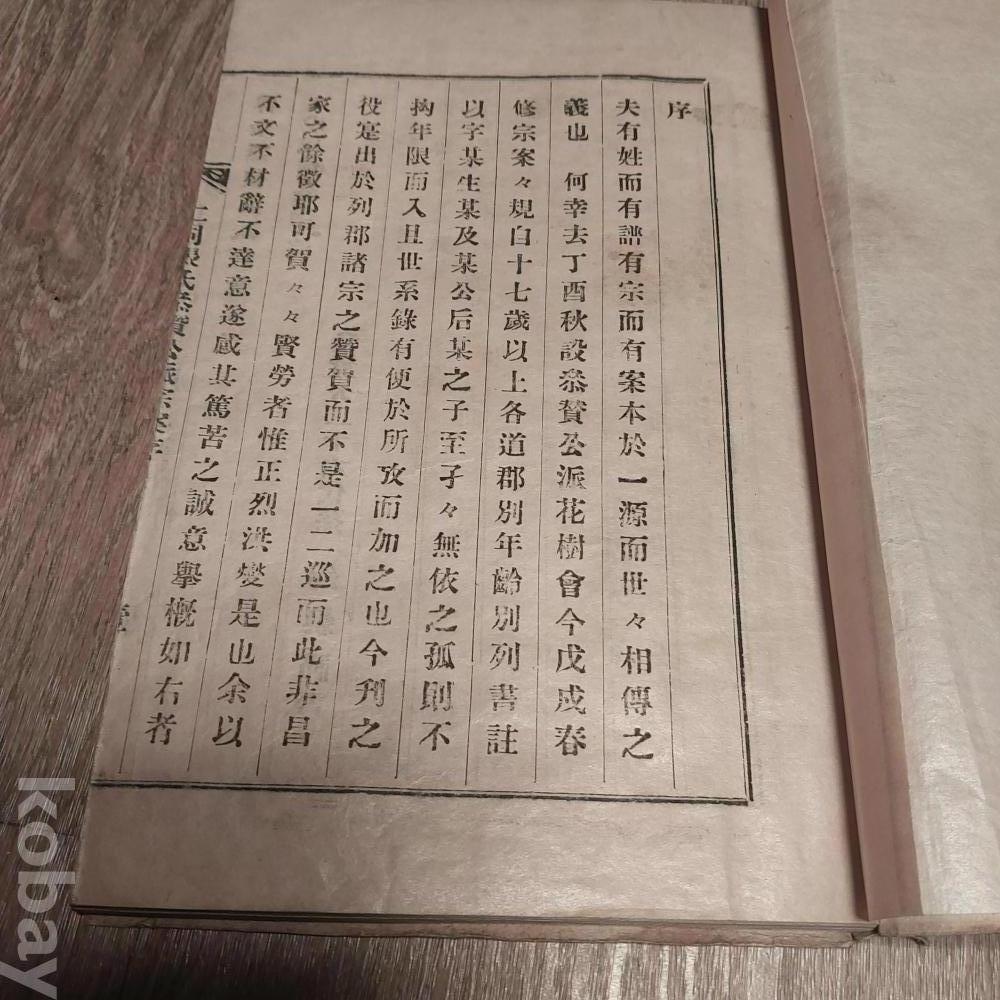 序
夫有姓而有譜有宗而有案本於一源而世々相傳之
義也 何幸去丁酉秋設叅贊公派花樹會今戊戌春
修宗案々規自十七歲以上各道郡別年齡別列書註
以字某生某及某公后某之子至孑々無依之孤則不
拘年限而入丑世系錄有便於所攷而加之也今刋之
役寔出於列郡諸宗之贊賀而不是一二巡而此非昌
家之餘徵耶可賀々々賢勞者惟正烈洪燮是也余以
不文不材辭不達意遂感其篤苦之誠意擧槪如右者
張氏叅贊公派宗案序
kobay